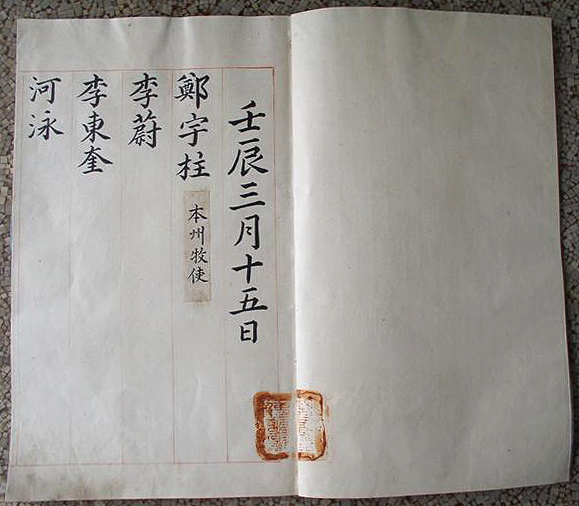 壬辰三月十五日
鄭宇柱
本州牧使
李蔚
李東奎
河泳